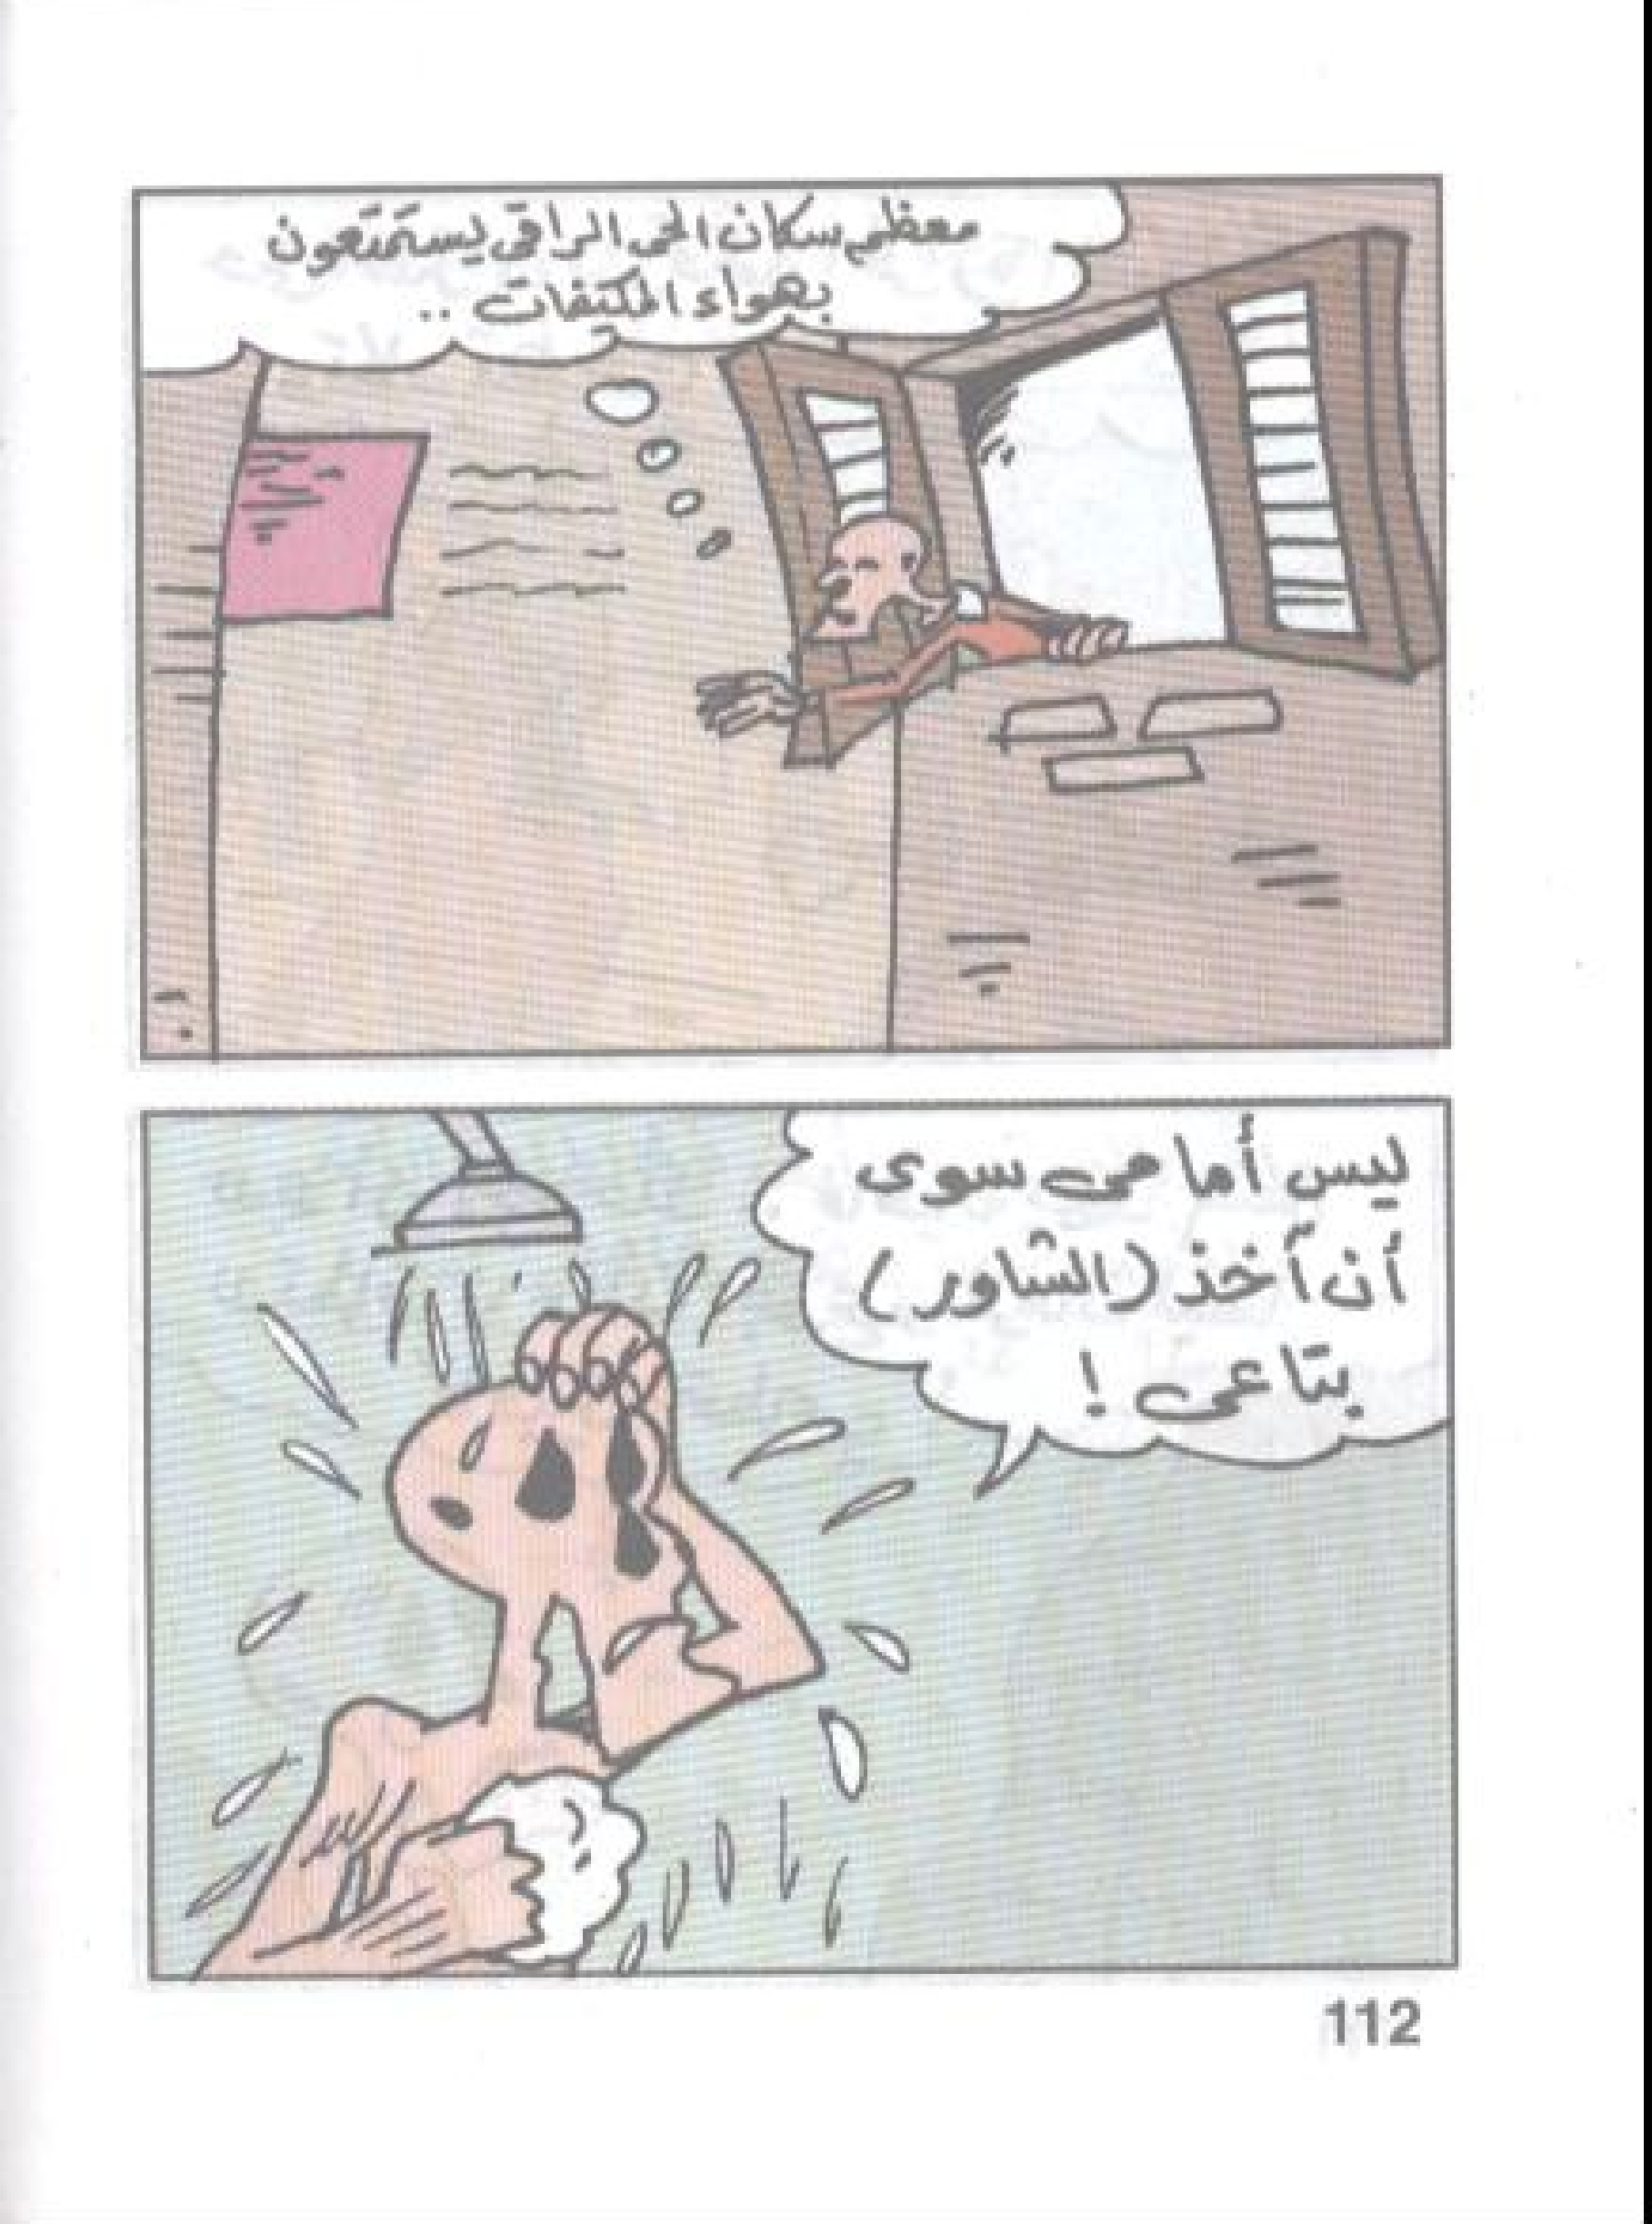 معظم سكان الحى الراقى يستمتعون
بهواء المكيفات ..
ليس أمامى سوى
أن آخذ (الشاور)
بتاعى !
112